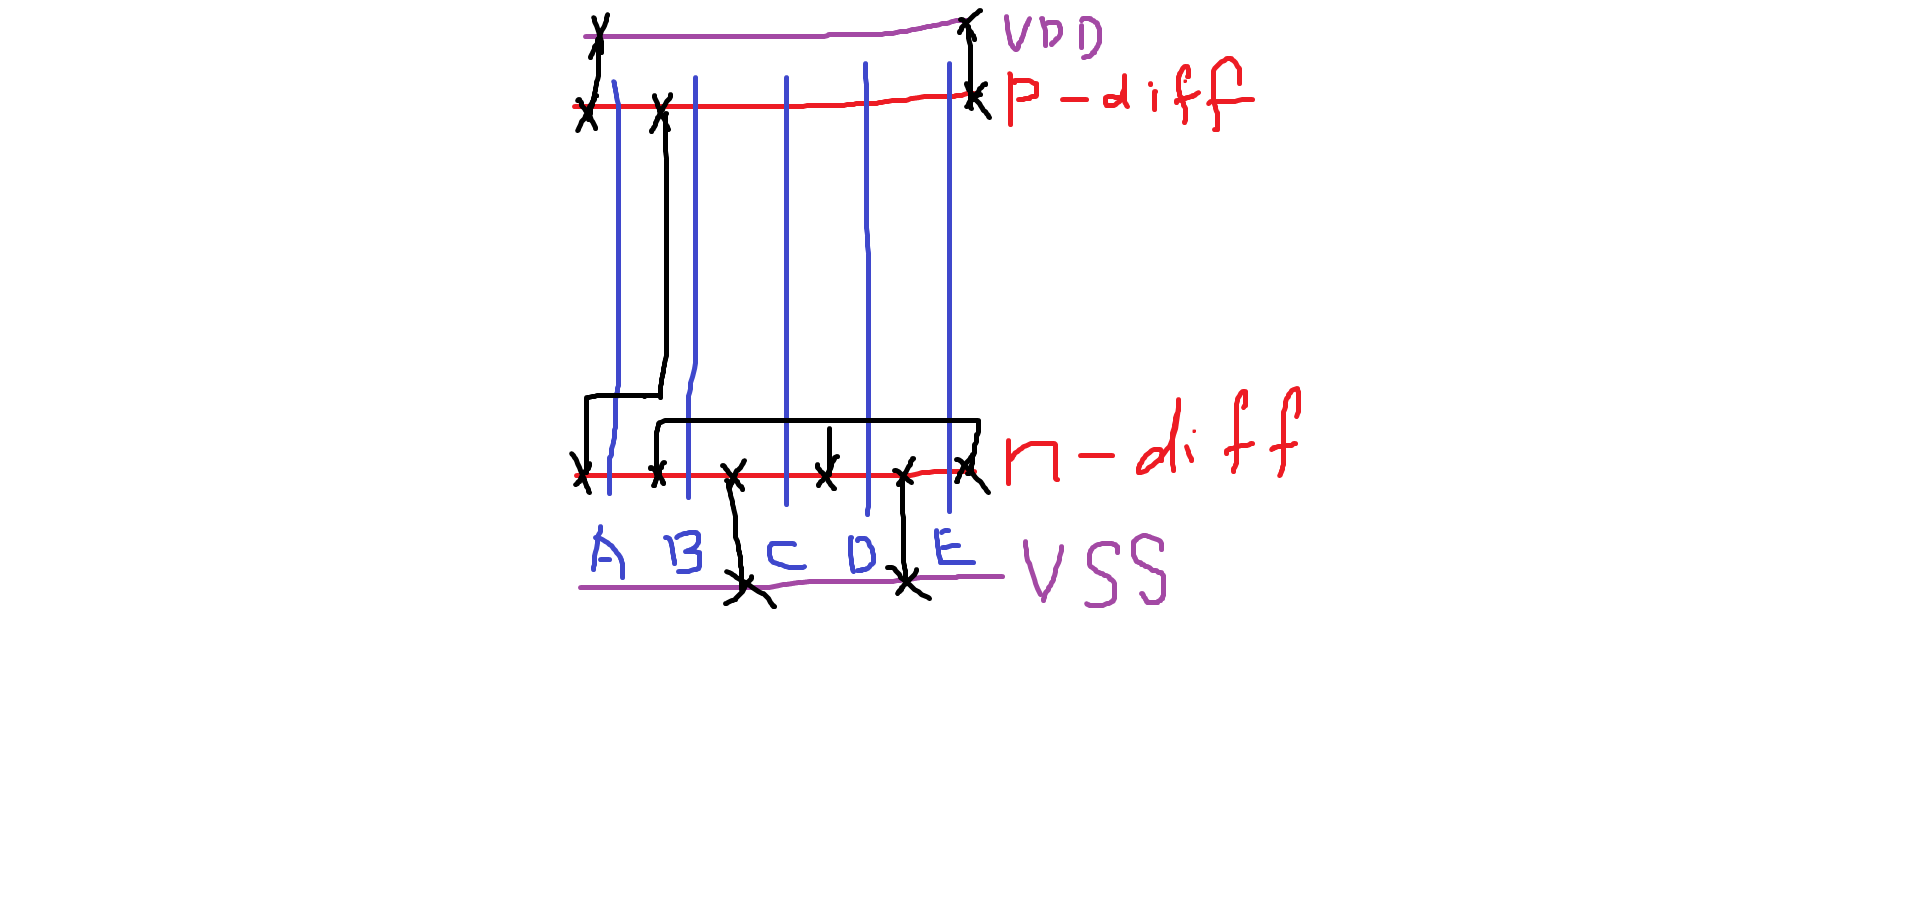 VDD
p-diff
n-diff
A B C D E
VSS